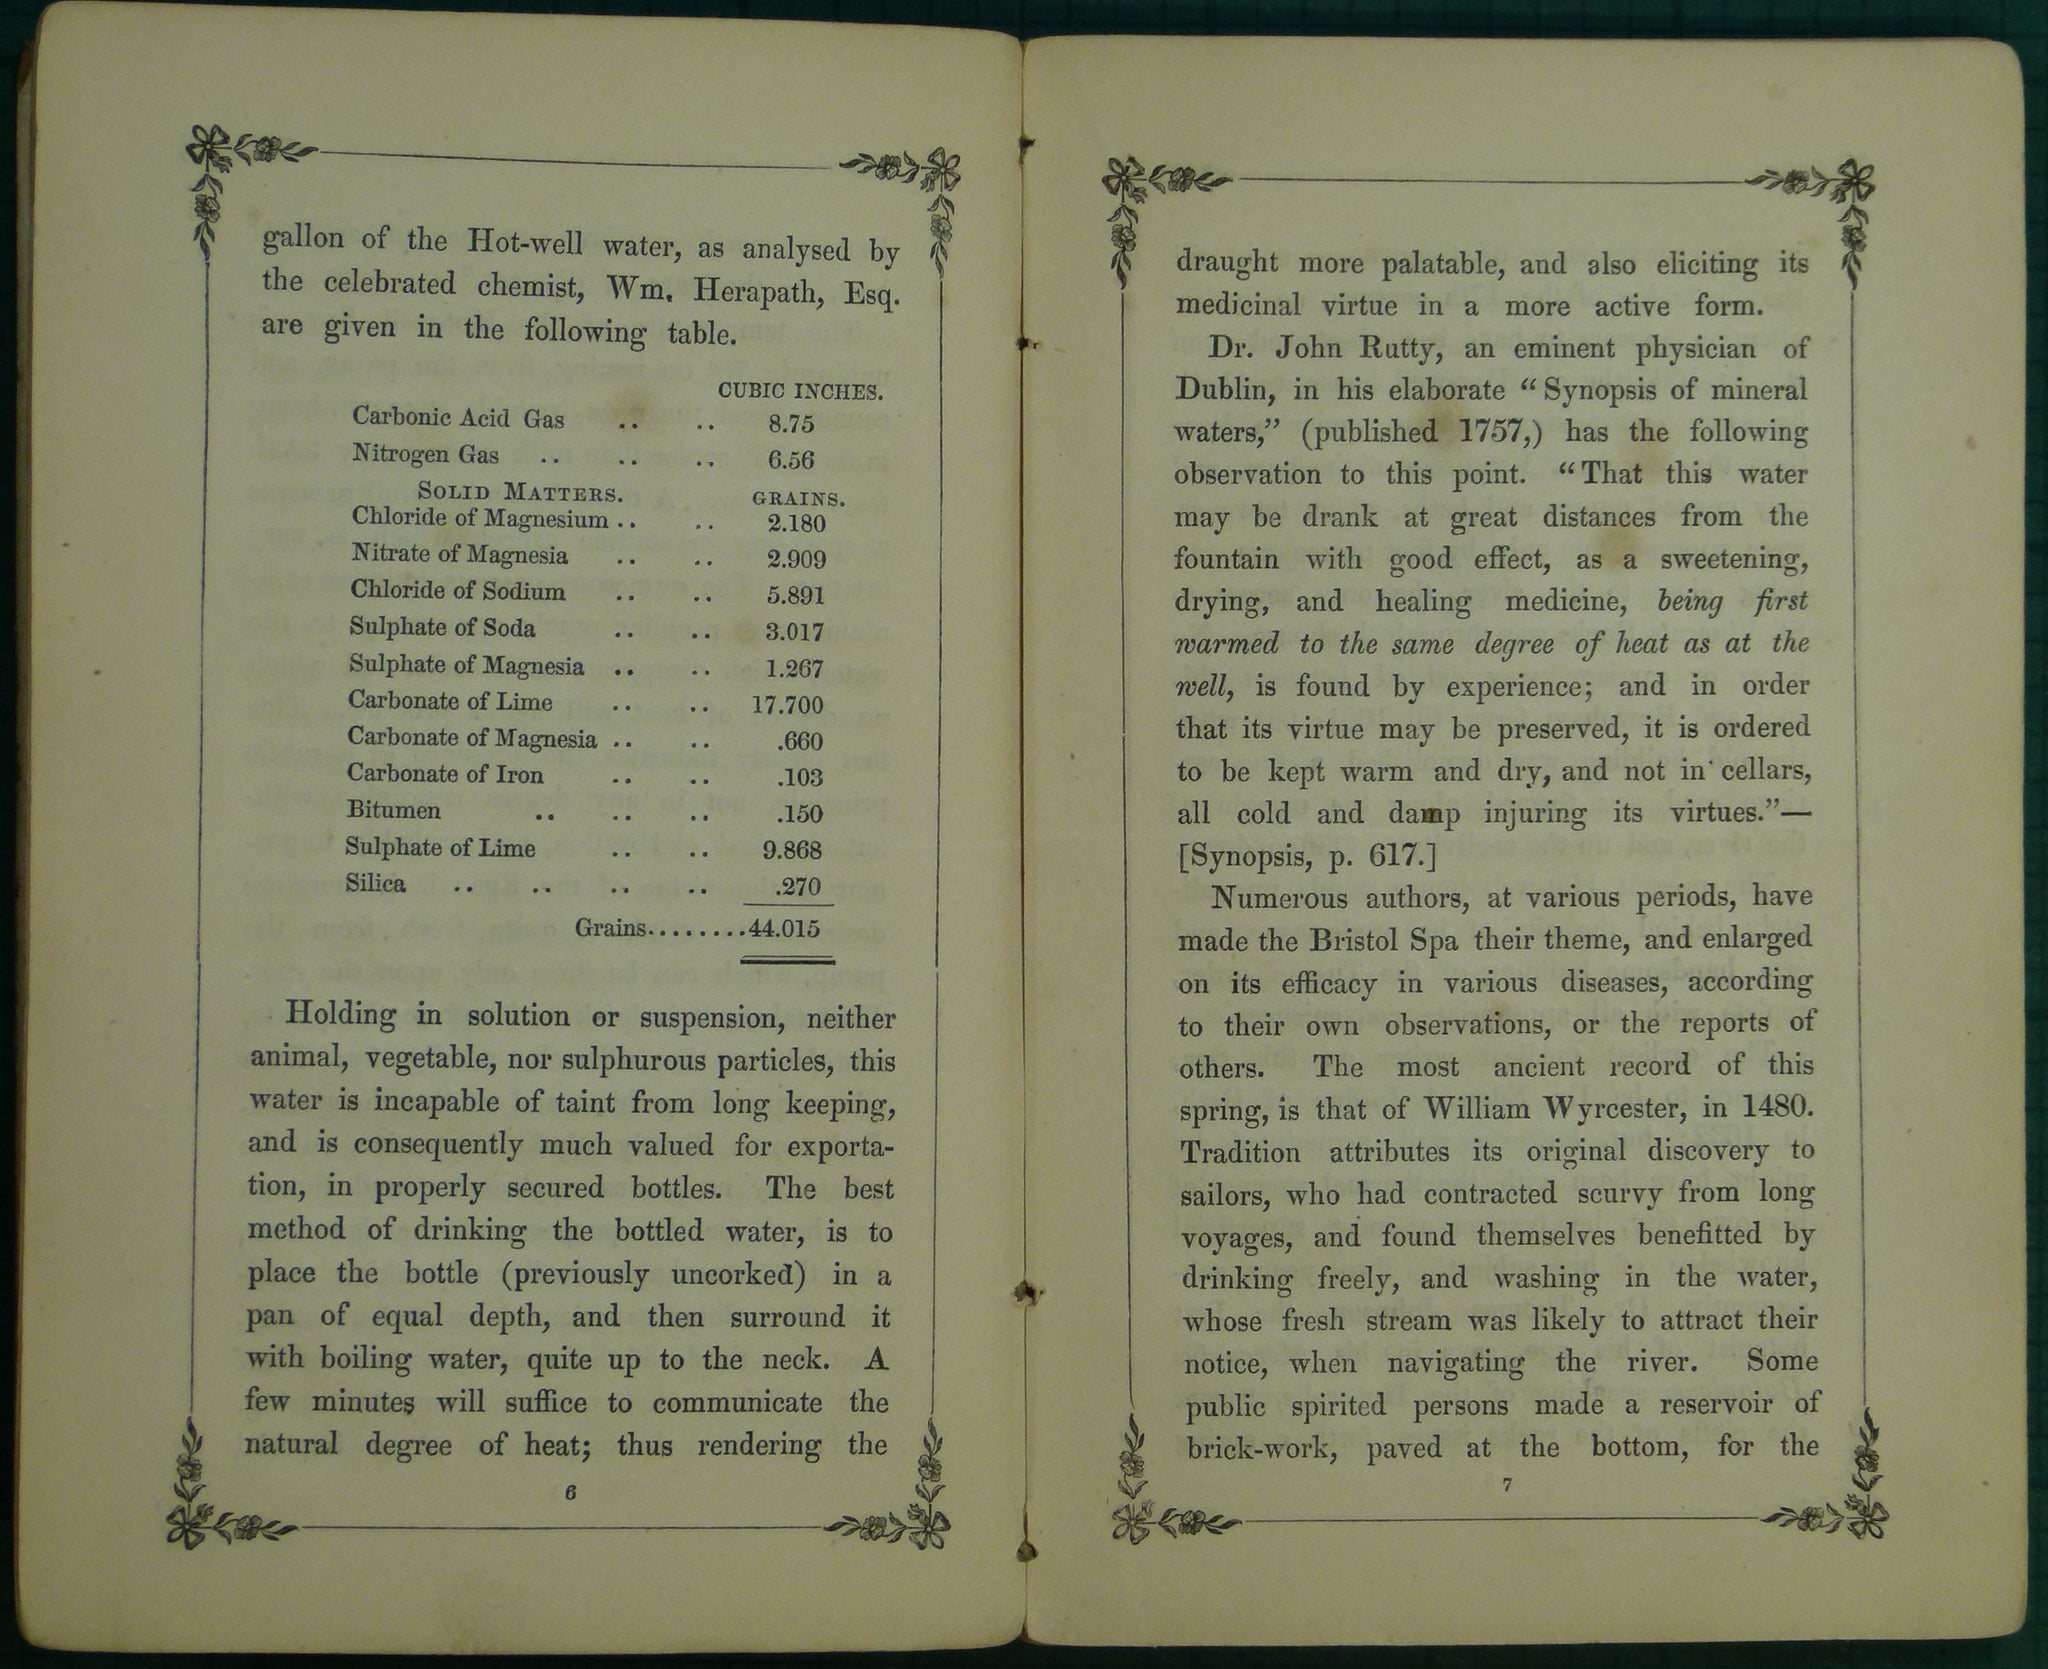 gallon of the Hot-well water, as analysed by
the celebrated chemist, Wm. Herapath, Esq.
are given in the following table.
CUBIC INCHES.
Carbonic Acid Gas .. .. 8.75
Nitrogen Gas .. .. .. 6.56
SOLID MATTERS. GRAINS.
Chloride of Magnesium .. .. 2.180
Nitrate of Magnesia .. .. 2.909
Chloride of Sodium .. .. 5.891
Sulphate of Soda .. .. 3.017
Sulphate of Magnesia .. .. 1.267
Carbonate of Lime .. .. 17.700
Carbonate of Magnesia .. .. .660
Carbonate of Iron .. .. .103
Bitumen .. .. .. .150
Sulphate of Lime .. .. 9.868
Silica .. .. .. .. .270
Grains........44.015
Holding in solution or suspension, neither
animal, vegetable, nor sulphurous particles, this
water is incapable of taint from long keeping,
and is consequently much valued for exporta-
tion, in properly secured bottles. The best
method of drinking the bottled water, is to
place the bottle (previously uncorked) in a
pan of equal depth, and then surround it
with boiling water, quite up to the neck. A
few minutes will suffice to communicate the
natural degree of heat; thus rendering the
6
draught more palatable, and also eliciting its
medicinal virtue in a more active form.
Dr. John Rutty, an eminent physician of
Dublin, in his elaborate “Synopsis of mineral
waters,” (published 1757,) has the following
observation to this point. “That this water
may be drank at great distances from the
fountain with good effect, as a sweetening,
drying, and healing medicine, being first
warmed to the same degree of heat as at the
well, is found by experience; and in order
that its virtue may be preserved, it is ordered
to be kept warm and dry, and not in cellars,
all cold and damp injuring its virtues.”—
[Synopsis, p. 617.]
Numerous authors, at various periods, have
made the Bristol Spa their theme, and enlarged
on its efficacy in various diseases, according
to their own observations, or the reports of
others. The most ancient record of this
spring, is that of William Wyrcester, in 1480.
Tradition attributes its original discovery to
sailors, who had contracted scurvy from long
voyages, and found themselves benefitted by
drinking freely, and washing in the water,
whose fresh stream was likely to attract their
notice, when navigating the river. Some
public spirited persons made a reservoir of
brick-work, paved at the bottom, for the
7